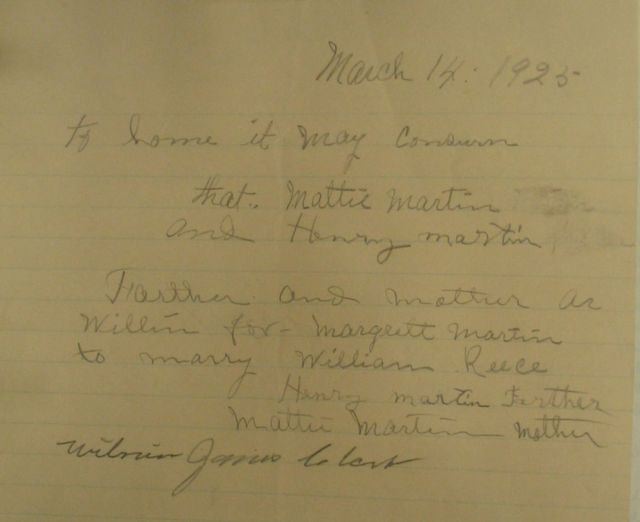 March 14. 1925
to home it may Consurn
that. Mattie Martin
and Henry martin
Farther and mother ar
Willin for - Margrett Martin
to marry William Reece
Henry martin Farther
Mattie Martin mother